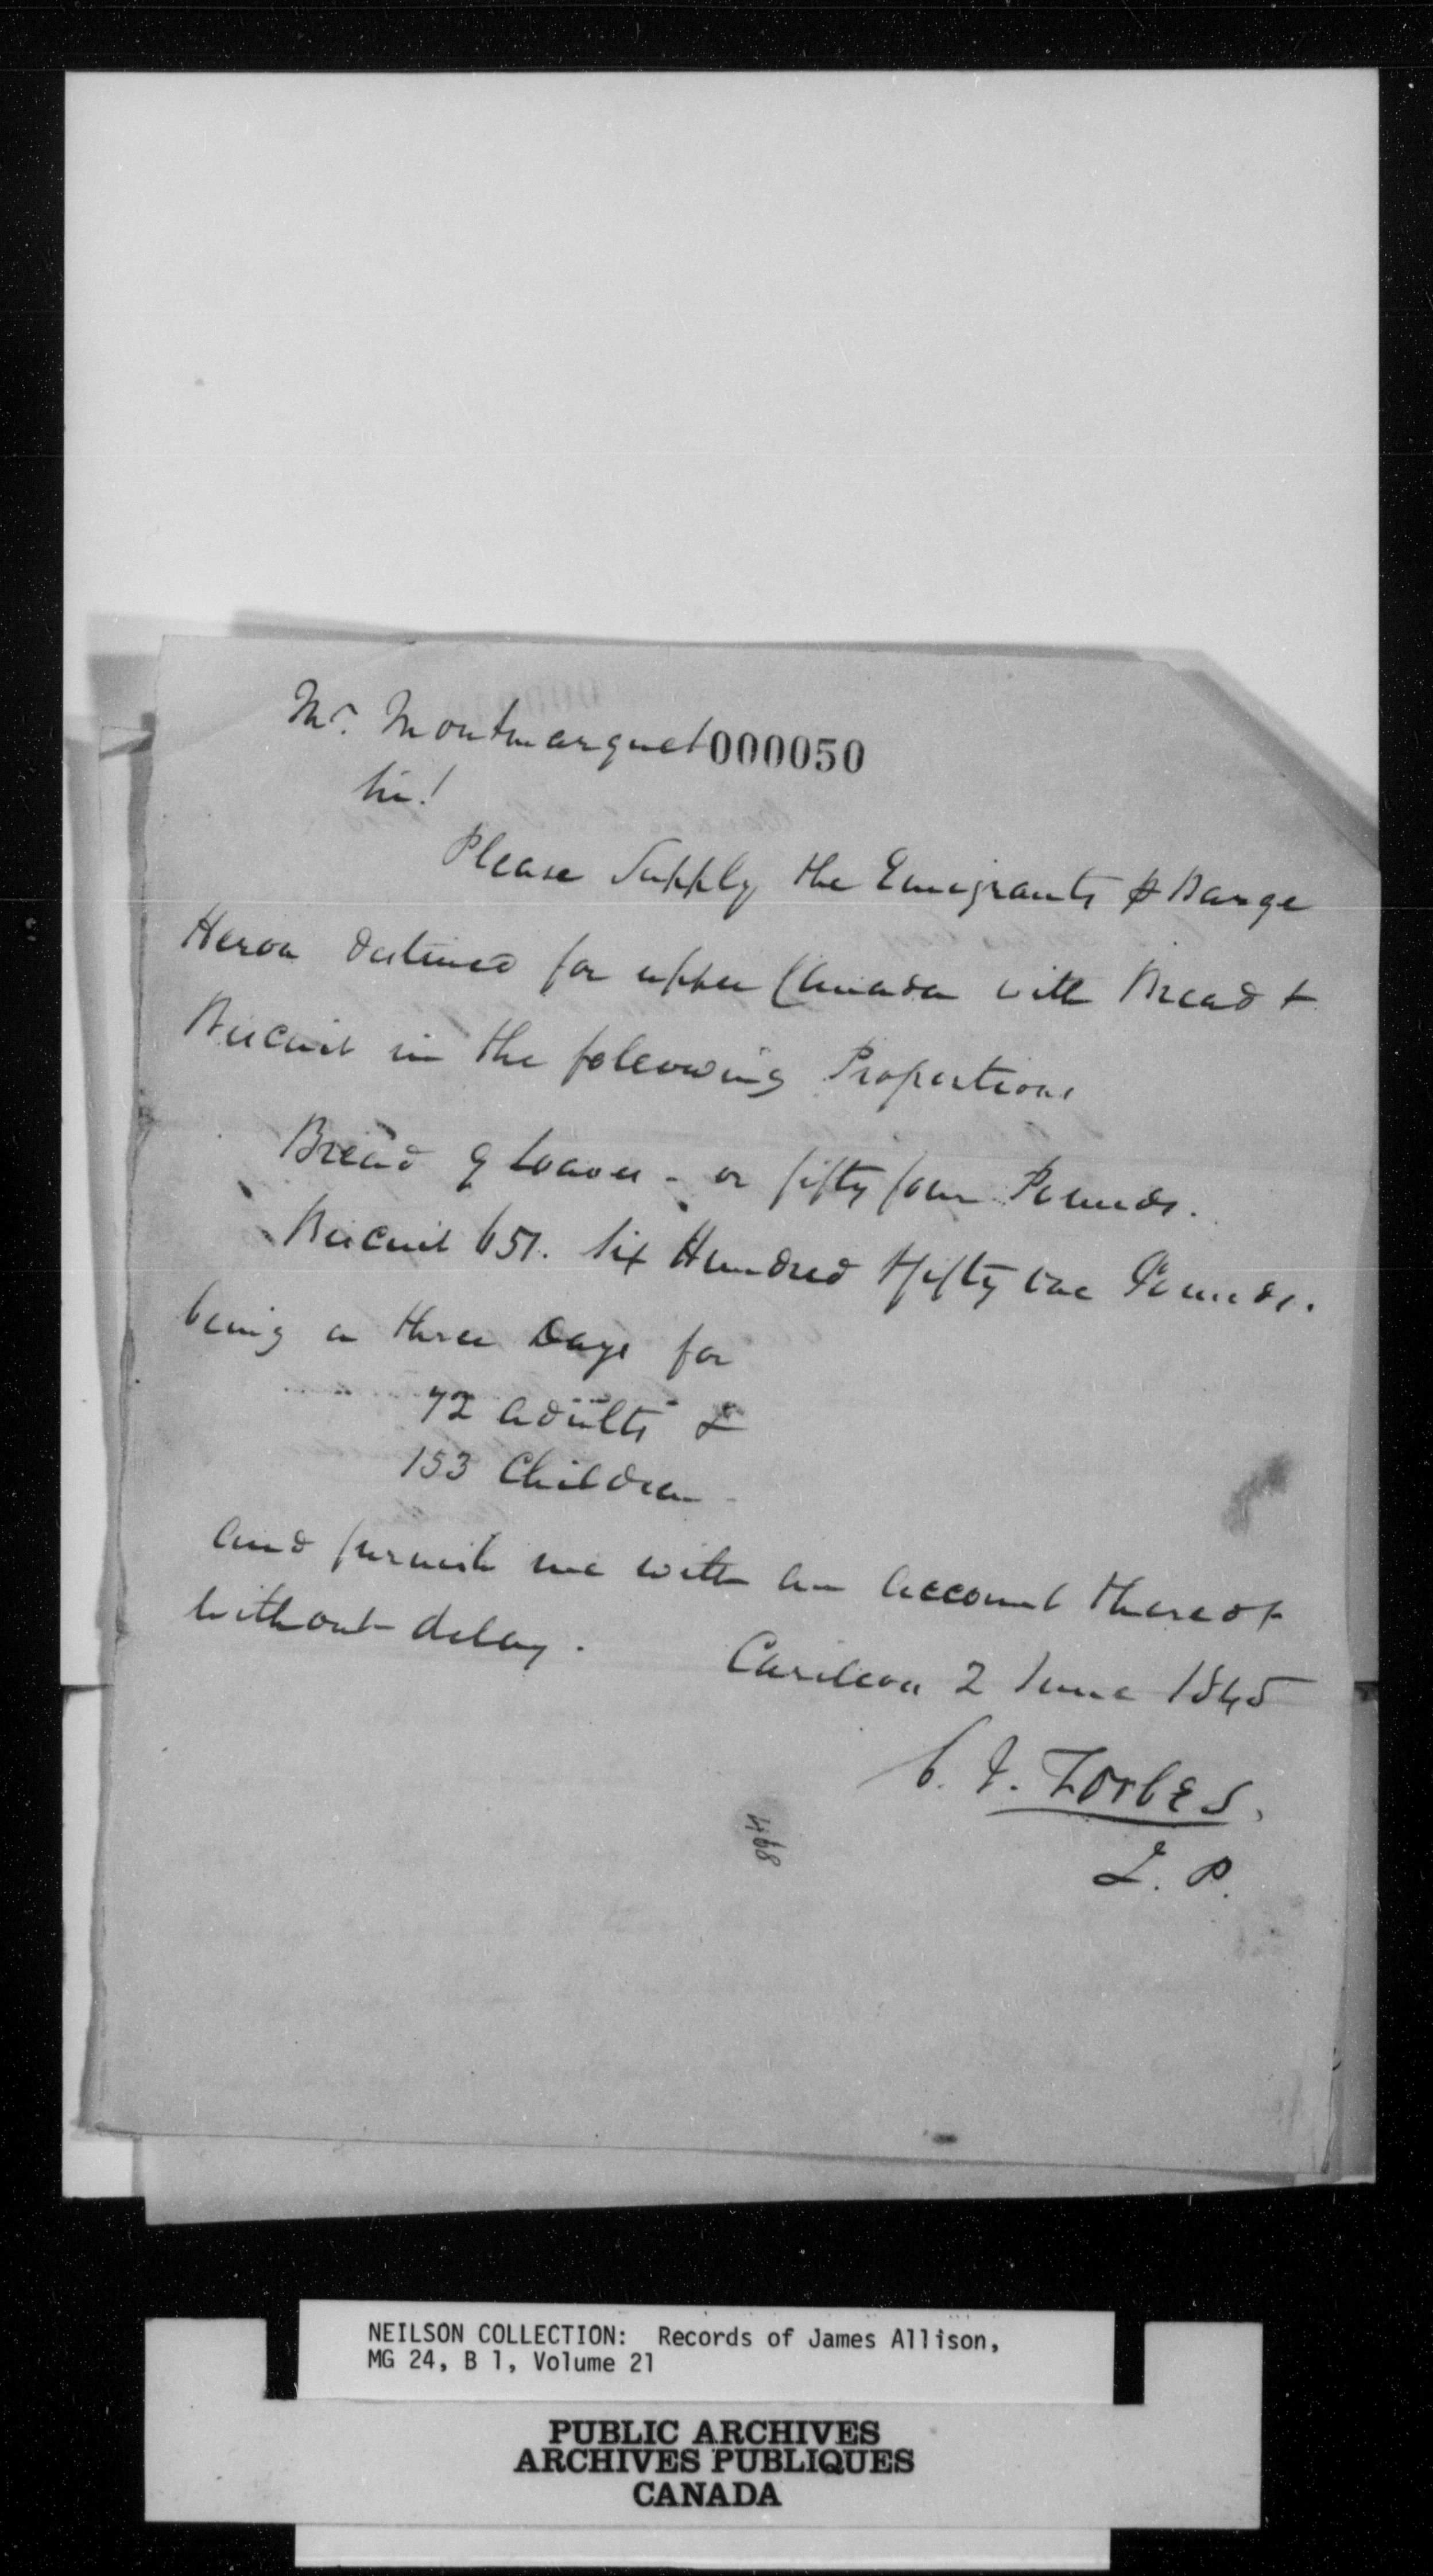 Mr. Montmarquet 000050
Sir!
Please Supply the Emigrants p Barge
Heron destined for upper Canada with Bread &
Biscuit in the following Proportions
Bread 9 Loaves - or fifty four Pounds.
Biscuit 651. Six Hundred & fifty one Pounds.
being a three Days for
72 adults &
153 Children
and furnish me with an account thereof
without delay.
Carileon 2 June 1845
C. J. Forbes.
J. P.
468
NEILSON COLLECTION: Records of James Allison,
MG 24, B 1, Volume 21
PUBLIC ARCHIVES
ARCHIVES PUBLIQUES
CANADA